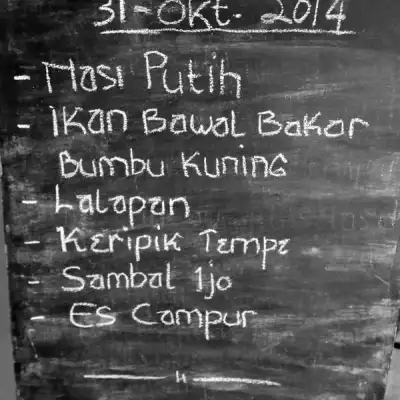 31-Okt. 2014
- Nasi Putih
- Ikan Bawal Bakar
Bumbu Kuning
- Lalapan
- Keripik Tempe
- Sambal Ijo
- Es Campur